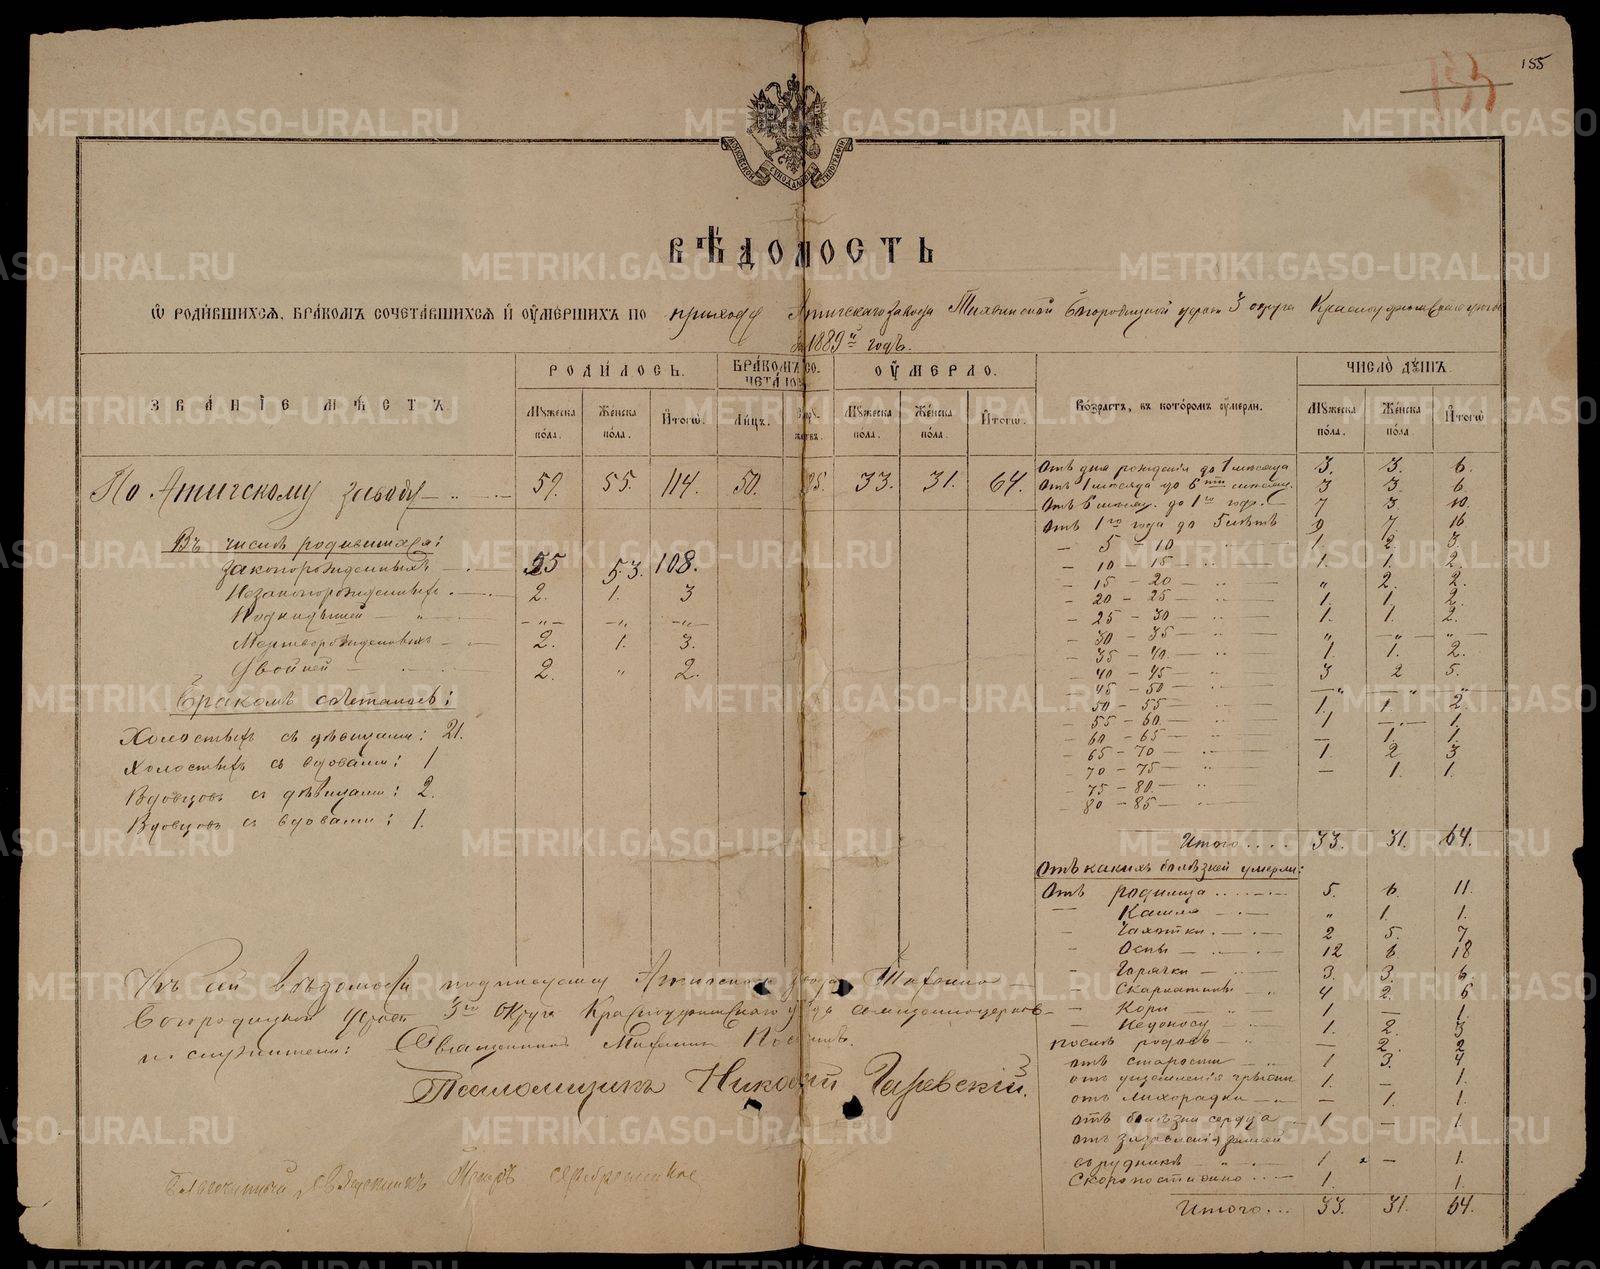 155
155
МОСКОВСКОЙ СѴНОДАЛЬНОЙ ТИПОГРАФІИ
ВѢДОМОСТЬ
Ѡ РОДИВШИХСЯ, БРАКОМЪ СОЧЕТАВШИХСЯ И ОУМЕРШИХЪ ПО приходу Атигскаго завода Тихвинской Богородицкой церкви 3 округа Красноуфимскаго уѣзда
за 1889й годъ.
ЗВАНІЕ МѢСТЪ РОДИЛОСЬ. БРАКОМЪ СОЧЕТАЛОСЬ ОУМЕРЛО. Возрастъ, въ которомъ оумерли. ЧИСЛО ДУШЪ.
Мужеска пола. Женска пола. Итогѡ. Лицъ. Мужеска пола. Женска пола. Итогѡ. Мужеска пола. Женска пола. Итогѡ
По Атигскому заводу 59. 55. 114. 50. 25. 33. 31. 64.
Въ числѣ родившихся:
Законорожденныхъ 55 53. 108.
Незаконорожденныхъ 2. 1. 3
Подкидышей — „ — „ — „ —
Мертворожденныхъ 2. 1. 3.
Двойней 2. „ 2.
Бракомъ сочеталось:
Холостыхъ съ дѣвицами: 21.
Холостыхъ съ вдовами: 1
Вдовцовъ съ дѣвицами: 2.
Вдовцовъ съ вдовами: 1.
Отъ дня рожденія до 1 мѣсяца 3. 3. 6.
Отъ 1 мѣсяца до 6ти мѣсяц. 3 3. 6.
Отъ 6 мѣсяц. до 1го года. 7 3. 10.
Отъ 1го года до 5 лѣтъ 9 7. 16
— 5 — 10 1. 2. 3.
— 10 — 15 1. 1. 2.
— 15 — 20 „ 2. 2.
— 20 — 25 1. 1. 2.
— 25 — 30 1. 1. 2.
— 30 — 35 „ „ „
— 35 — 40 1. 1. 2.
— 40 — 45 3 2 5.
— 45 — 50 „ „ „
— 50 — 55 1. 1. 2.
— 55 — 60 1 — 1.
— 60 — 65 — 1. 1.
— 65 — 70 1. 2 3
— 70 — 75 — 1. 1.
— 75 — 80
— 80 — 85
Итого.... 33. 31. 64.
Отъ какихъ болѣзней умерли:
Отъ родимца 5. 6. 11.
— Кашля „ 1. 1.
— Чахотки 2 5. 7
— Оспы 12 6. 18
— Горячки 3. 3. 6.
— Скарлатины 4 2. 6
— Кори 1 — 1.
— Недоносу 1. 2. 3
послѣ родовъ — 2. 2
отъ старости 1 3. 4
отъ ущемленія грыжи 1. — 1.
отъ лихорадки — 1. 1.
отъ болѣзни сердца 1 — 1.
отъ
въ рудникѣ 1 — 1.
Скоропостижно 1. 1.
Итого... 33. 31. 64.
Къ сей вѣдомости подписуемся Атигскаго завода Тихвино-
Богородицкой церкви 3го округа Красноуфимскаго уѣзда священноцерков-
но служители: Священникъ
Псаломщикъ Николай
Благочинный, священникъ